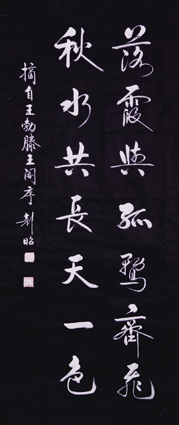 落霞與孤鶩齊飛
秋水共長天一色
摘自王勃滕王閣序